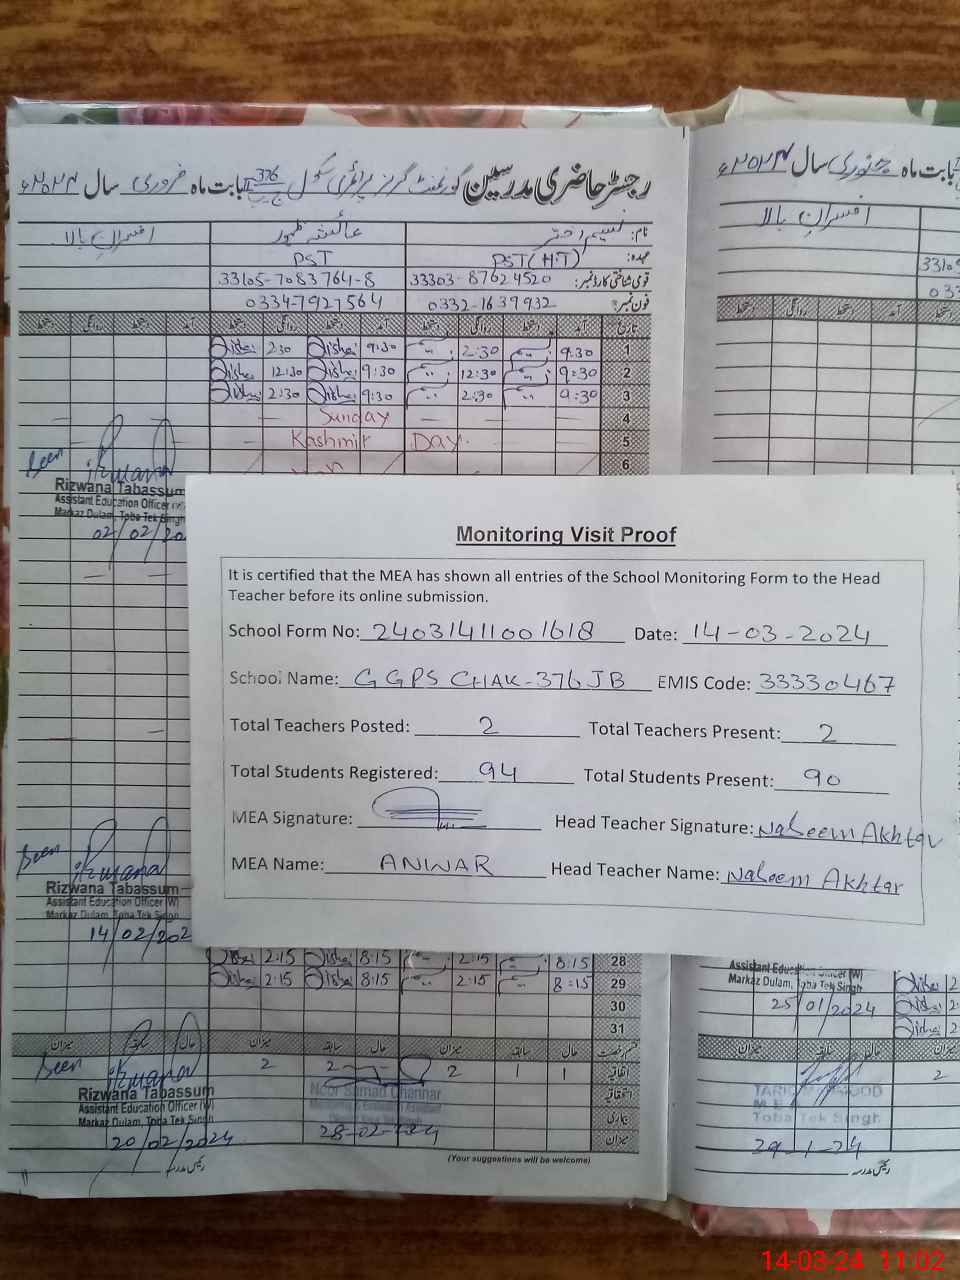 رجسٹر حاضری مدرسین گورنمنٹ گرلز پرائمری سکول 376 ج ب بابت ماہ فروری سال ۲۰۲۴ء
نام: نسیم اختر عائشہ ظہور افسران بالا
عہدہ: PST (H.T) PST
قومی شناختی کارڈ نمبر: 33303-87624520 33105-7083764-8
فون نمبر: 0332-1639932 0334-7921564
تاریخ آمد دستخط روانگی دستخط آمد دستخط روانگی دستخط آمد دستخط روانگی دستخط
1 9:30 2:30 9:30 Aisha 2:30 Aisha
2 9:30 12:30 9:30 Aisha 12:30 Aisha
3 9:30 2:30 9:30 Aisha 2:30 Aisha
4 Sunday
5 Kashmir Day.
6
Seen
Rizwana Tabassum
Assistant Education Officer
Markaz Dulam, Toba Tek Singh
02/02/20
Monitoring Visit Proof
It is certified that the MEA has shown all entries of the School Monitoring Form to the Head
Teacher before its online submission.
School Form No: 24031411001618 Date: 14-03-2024
School Name: GGPS CHAK-376 JB EMIS Code: 33330467
Total Teachers Posted: 2 Total Teachers Present: 2
Total Students Registered: 94 Total Students Present: 90
MEA Signature: Head Teacher Signature: Naseem Akhtar
MEA Name: ANWAR Head Teacher Name: Naseem Akhtar
Seen
Rizwana Tabassum
Assistant Education Officer (W)
Markaz Dulam, Toba Tek Singh
14/02/202
28 8:15 2:15 8:15 Aisha 2:15 Aisha
29 8:15 2:15 8:15 Aisha 2:15 Aisha
30
31
قسم رخصت حال سابقہ میزان حال سابقہ میزان حال سابقہ میزان
اتفاقیہ 1 1 2 2 2
استحقاقیہ
بیماری
میزان
Seen
Rizwana Tabassum
Assistant Education Officer (W)
Markaz Dulam, Toba Tek Singh
20/02/2024
Noor Samad Channar
Monitoring & Evaluation Assistant
28-02-2024
(Your suggestions will be welcome)
رئیس مدرسہ
بابت ماہ جنوری سال ۲۰۲۴ء
افسران بالا
3310
033
دستخط روانگی دستخط آمد دستخط
Assistant Education Officer (W)
Markaz Dulam, Toba Tek Singh
25/01/2024
Aisha 2
Aisha 2
Aisha 2
میزان سابقہ حال میزان
2
TARIQ MAHMOOD
M E A
Toba Tek Singh
29-1-24
رئیس مدرسہ
14-03-24 11:02